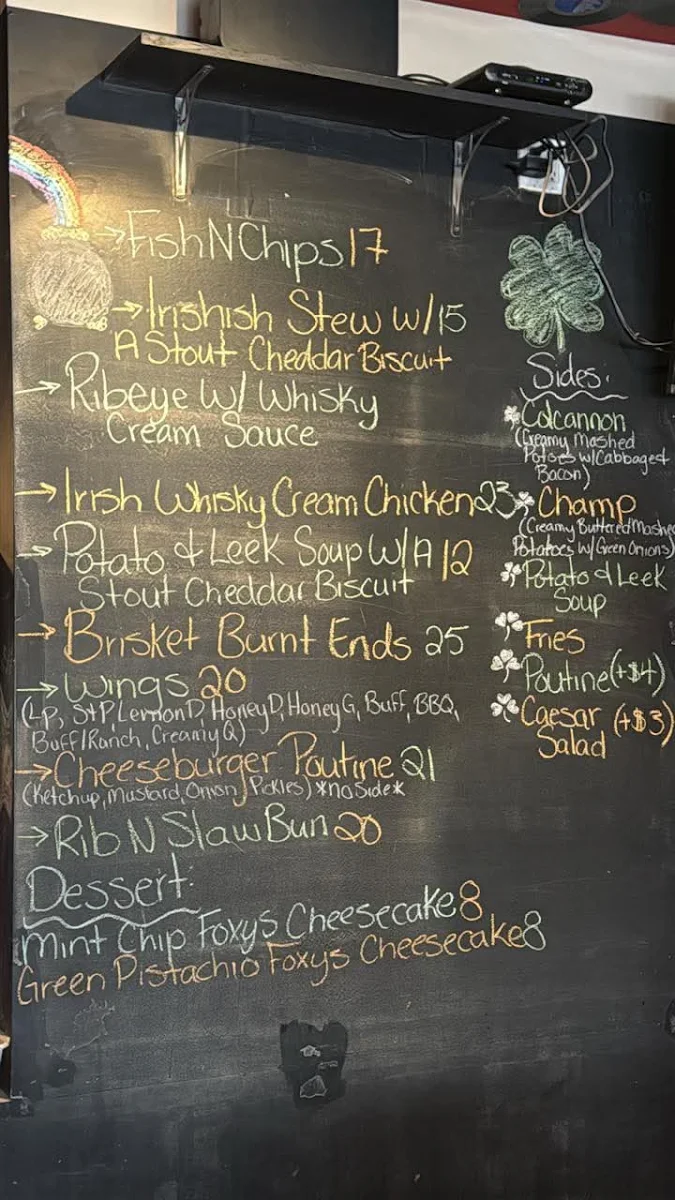 Fish N Chips 17
Irishish Stew w/ 15
A Stout Cheddar Biscuit
Ribeye W/ Whisky
Cream Sauce
Irish Whisky Cream Chicken 23
Potato & Leek Soup W/A 12
Stout Cheddar Biscuit
Brisket Burnt Ends 25
Wings 20
(LP, S+P, Lemon D, Honey D, Honey G, Buff, BBQ,
Buff/Ranch, Creamy Q)
Cheeseburger Poutine 21
(Ketchup, Mustard, Onion, Pickles) *no Side*
Rib N Slaw Bun 20
Dessert:
Mint Chip Foxys Cheesecake 8
Green Pistachio Foxys Cheesecake 8
Sides:
Colcannon
(Creamy Mashed
W/Cabbage &
Bacon)
Champ
(Creamy Buttered Mashed
Potatoes W/Green Onions)
Potato & Leek
Soup
Fries
Poutine (+$4)
Caesar (+$3)
Salad